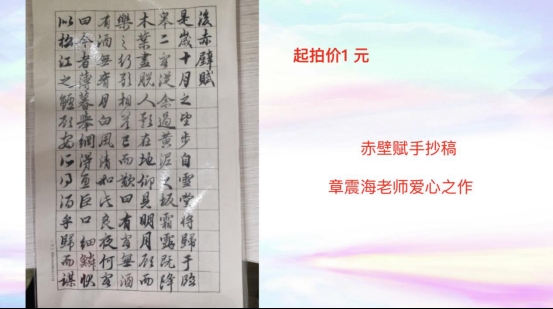 後赤壁賦
是歲十月之望步自雪堂將歸于臨
皋二客從余過黃泥之坂霜露既降
木葉盡脫人影在地仰見明月顧而
樂之行歌相答已而歎曰有客無酒
有酒無肴月白風清如此良夜何客
曰今者薄暮舉網得魚巨口細鱗狀
似松江之鱸顧安所得酒乎歸而謀
起拍价1 元
赤壁赋手抄稿
章震海老师爱心之作